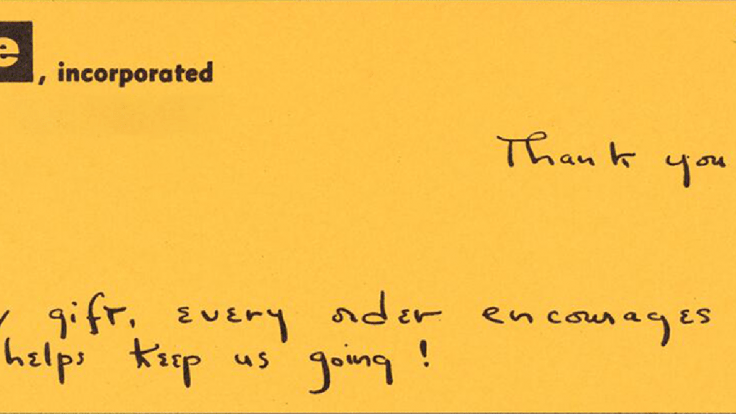 e, incorporated
Thank you
gift, every order encourages
helps keep us going!